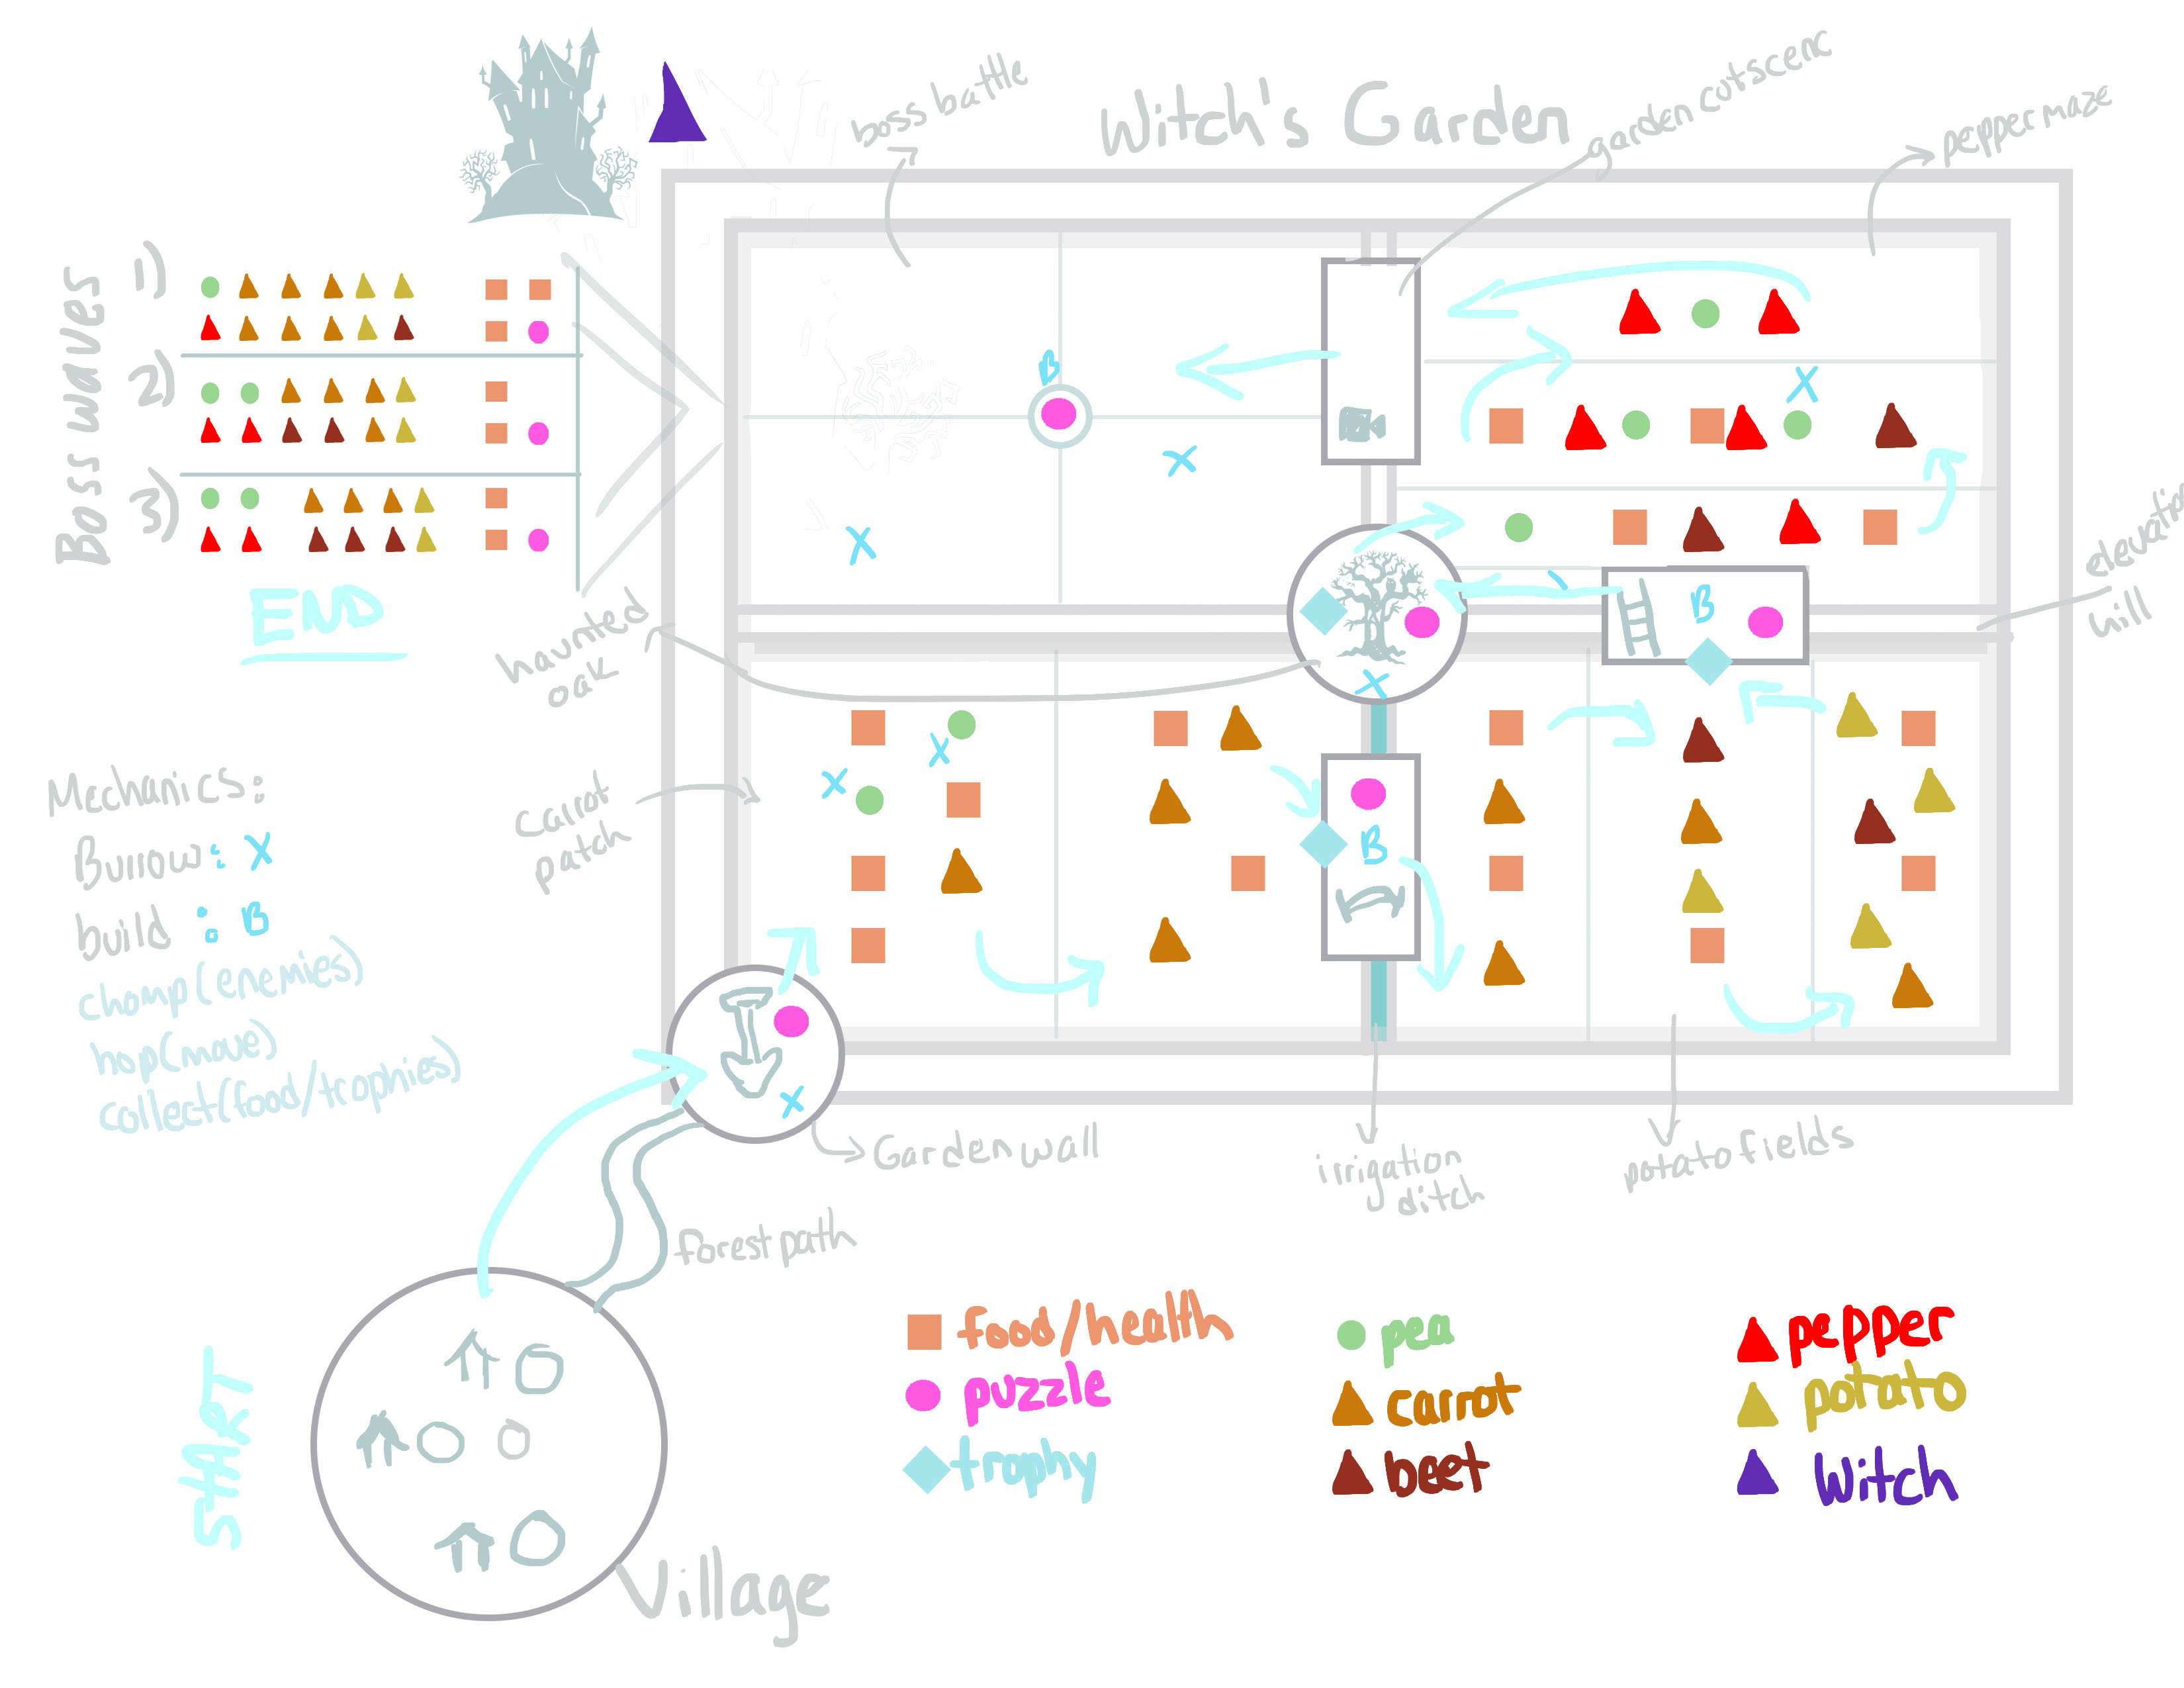 Witch's Garden
boss battle
garden cutscene
pepper maze
Boss waves
1)
2)
3)
END
B
haunted
oak
elevation
hill
B
carrot
patch
B
Mechanics:
Burrow: X
build : B
chomp(enemies)
hop(move)
collect(food/trophies)
Garden wall
irrigation
ditch
potato fields
forest path
START
Village
food/health
puzzle
trophy
pea
carrot
beet
pepper
potato
Witch